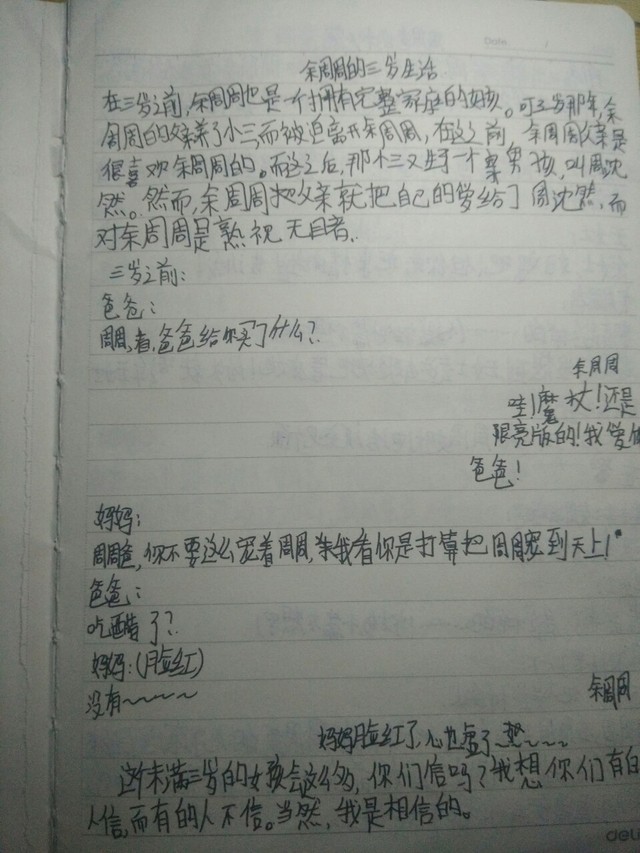 余周周的三岁生活
在三岁之前,余周周也是一个拥有完整家庭的女孩。可三岁那年,余
周周的父亲养了小三,而被迫离开余周周,在这之前,余周周父亲是
很喜欢余周周的。而这之后,那个三又生了一个男孩,叫周沈
然。然而,余周周把父亲就把自己的爱给了周沈然,而
对余周周是熟视无目者。
三岁之前:
爸爸:
周周,看,爸爸给你买了什么?
余周周
哇!魔杖!还是
限亮版的!我爱你
爸爸!
妈妈:
周周爸,你不要这么宠着周周,我看你是打算把周周宠到天上!
爸爸:
吃醋了?
妈妈:(脸红)
没有~~~~
余周周
妈妈脸红了,心也虚了~~~~
这未满三岁的女孩会这么多,你们信吗?我想你们有的
人信,而有的人不信。当然,我是相信的。
Date
deli